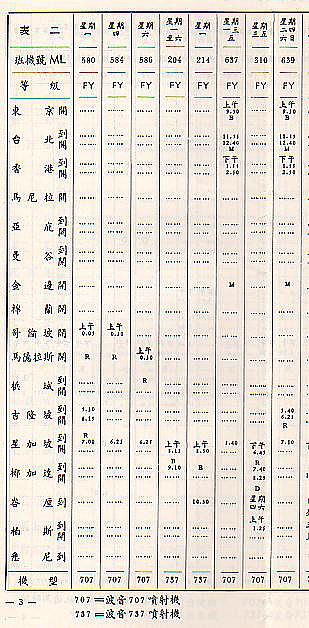 表 二 星期一 星期四 星期六 星期二至六 星期一 星期一三五 星期三五 星期二四六日
班機號ML 580 584 586 204 214 637 310 639
等 級 FY FY FY FY FY FY FY FY
東 京 開 上午 9.30 B 上午 9.30 B
台 北 到 開 11.55 12.40 M 12.40 M
香 港 到 開 下午 2.50 下午 2.50
馬尼拉 開
亞 庇 到 開
曼 谷 到 開
金 邊 開 M M
棉 蘭 開
哥倫坡 開 上午 0.05 上午 0.30
馬德拉斯 開 R R 上午 0.30
檳 城 到 開 R
吉隆坡 到 開 5.30 6.15 5.40 6.25 R
星加坡 到 開 R 7.00 6.25 6.25 上午 上午 5.40 下午 6.45 7.10
椰加達 到 開 9.10 B R 7.40 8.25 D
峇 厘 到 10.50 星期四六
柏 斯 到 開 上午 1.25
悉 尼 到
機 型 707 707 707 737 737 707 707 707
— 3 — 707 =波音707噴射機
737 =波音737噴射機